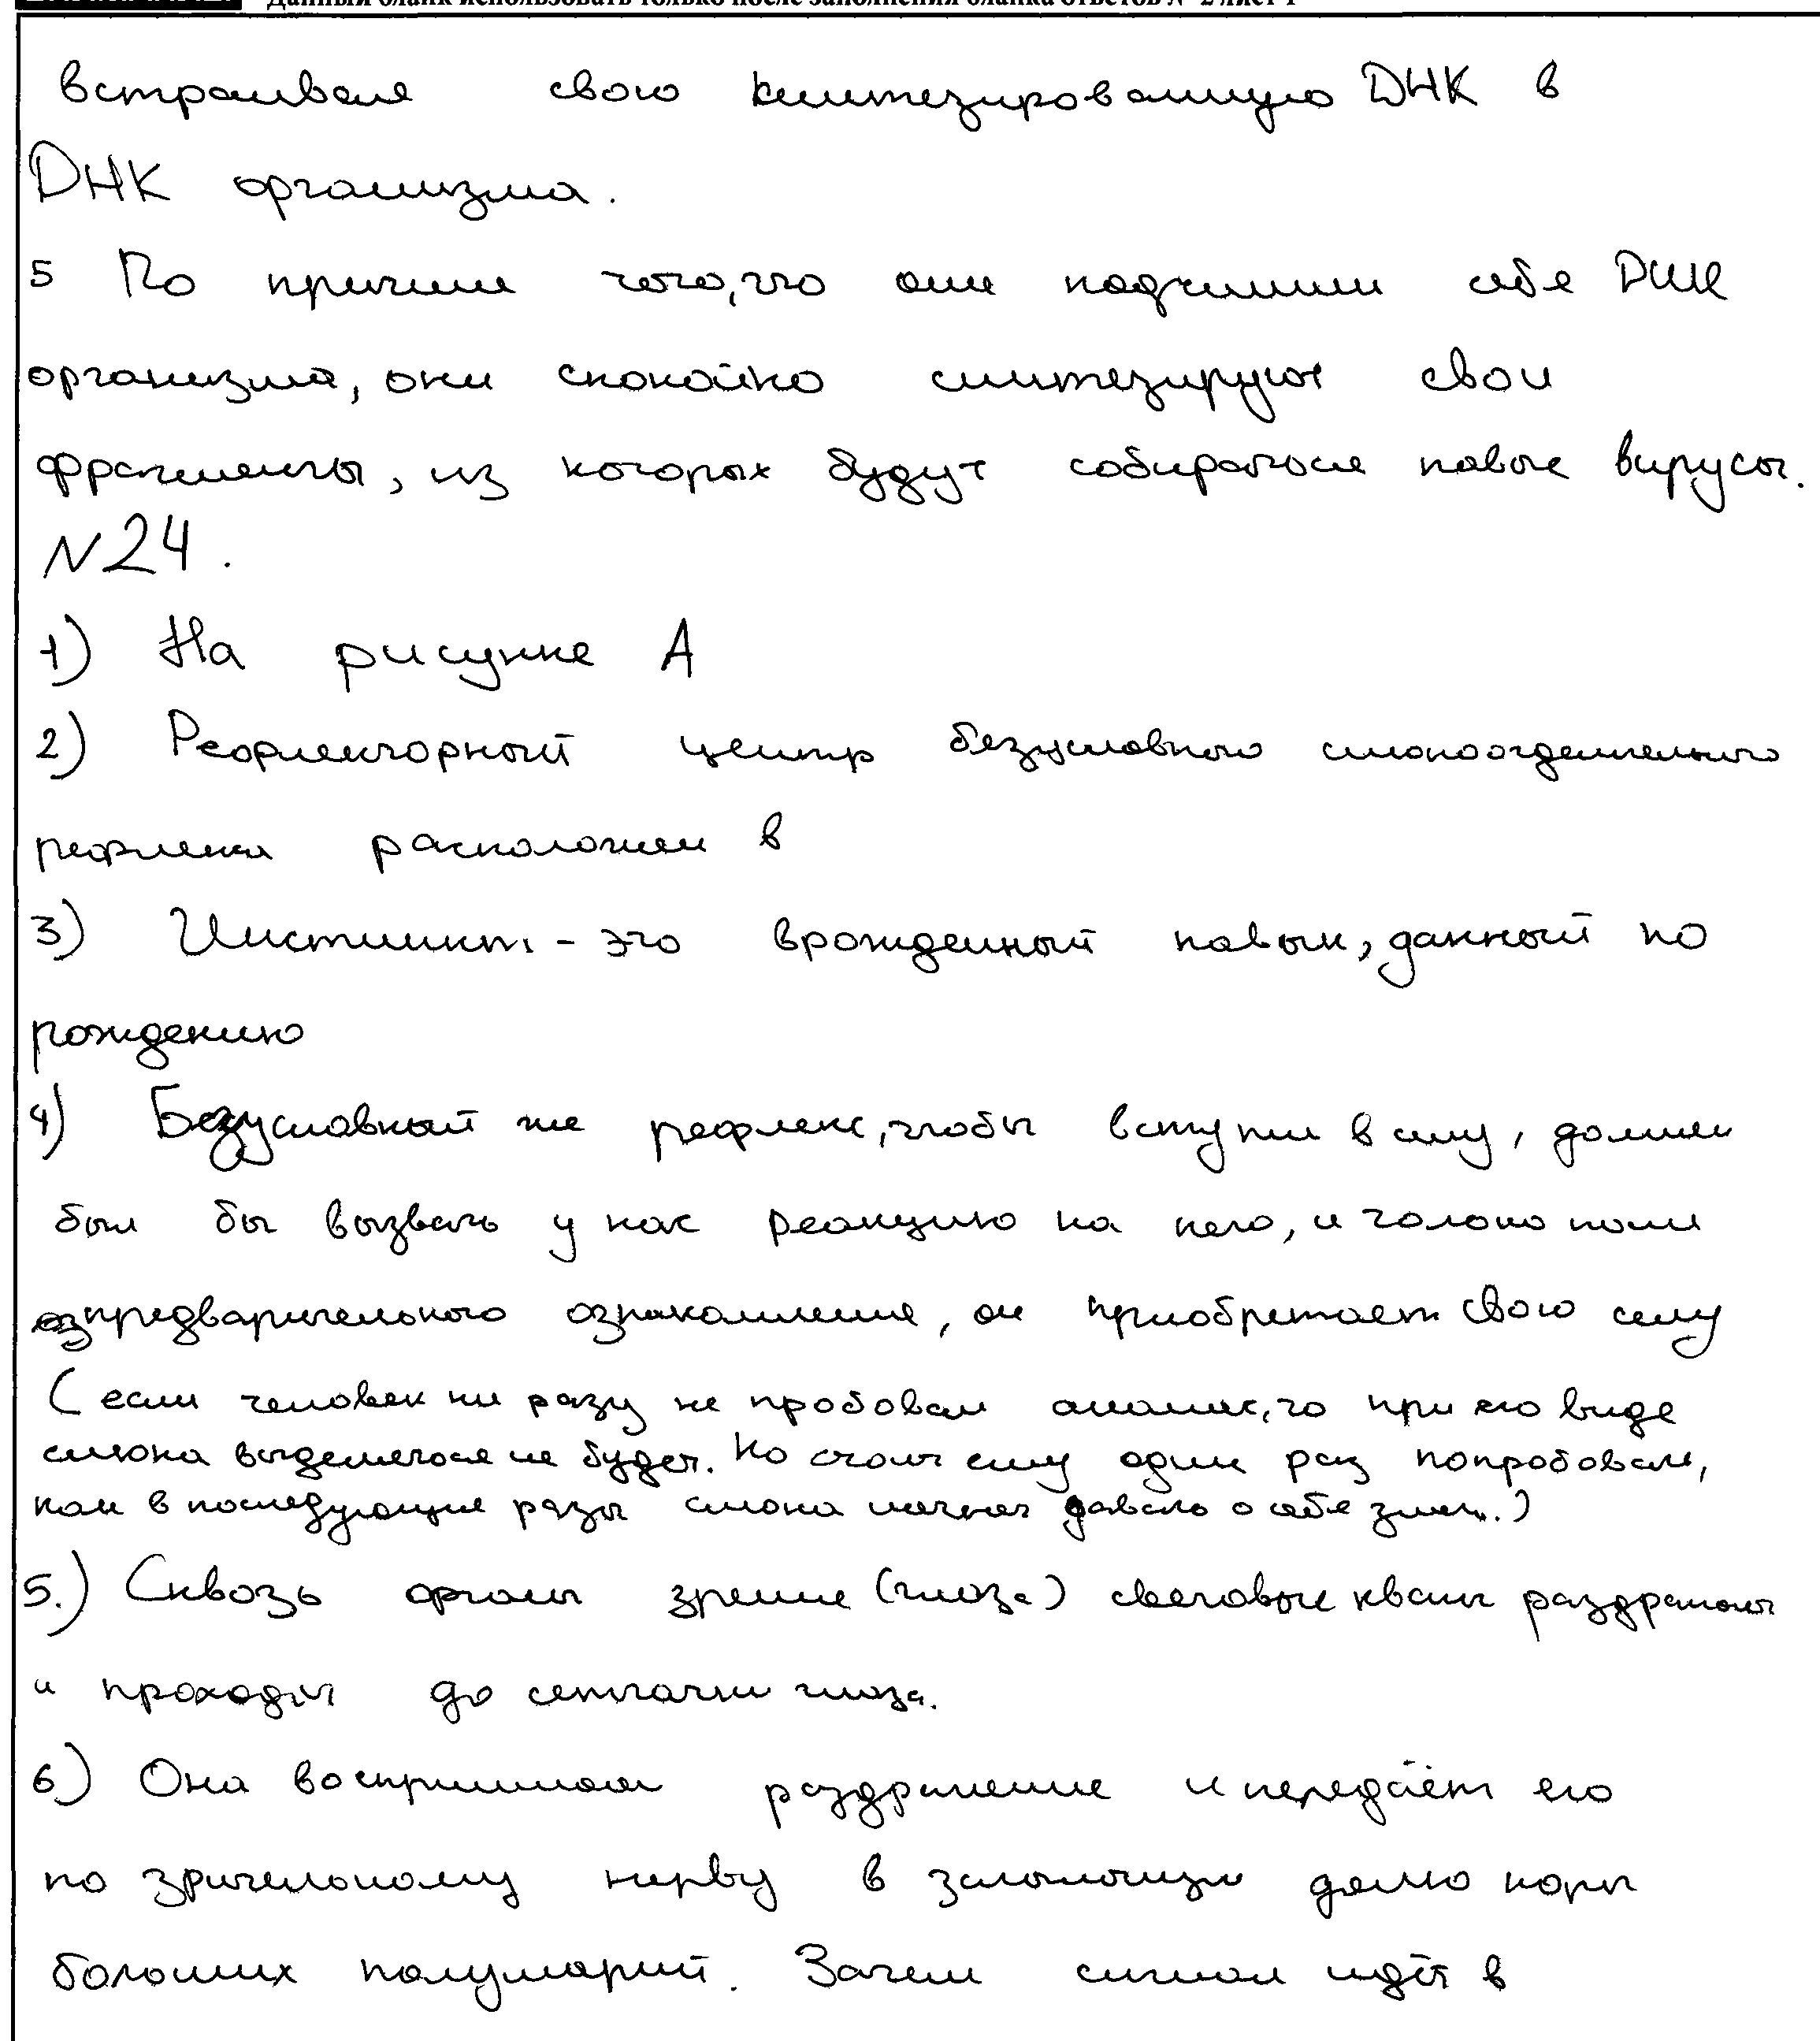 Данный бланк использовать только после заполнения бланка ответов № 2 лист 1
встраивая свою синтезированную ДНК в
ДНК организма.
5 По причине того, что они подчинили себе ДНК
организма, они спокойно синтезируют свои
фрагменты, из которых будут собираться новые вирусы.
N24.
1) На рисунке А
2) Рефлекторный центр безусловного слюноотделительного
рефлекса расположен в
3) Инстинкт - это врожденный навык, данный по
рождению
4) Безусловный же рефлекс, чтобы вступил в силу, должен
был бы вызвать у нас реакцию на него, и только
предварительного ознакомления, он приобретает свою силу
(если человек ни разу не пробовал ананас, то при его виде
слюна выделяться не будет. Но стоит ему один раз попробовать,
как в последующие разы слюна начнет давать о себе знать.)
5.) Сквозь органы зрения (глаза) световые кванты раздражают
и проходят до сетчатки глаза.
6) Она воспринимает раздражение и передаёт его
по зрительному нерву в затылочную долю коры
больших полушарий. Затем сигнал идёт в